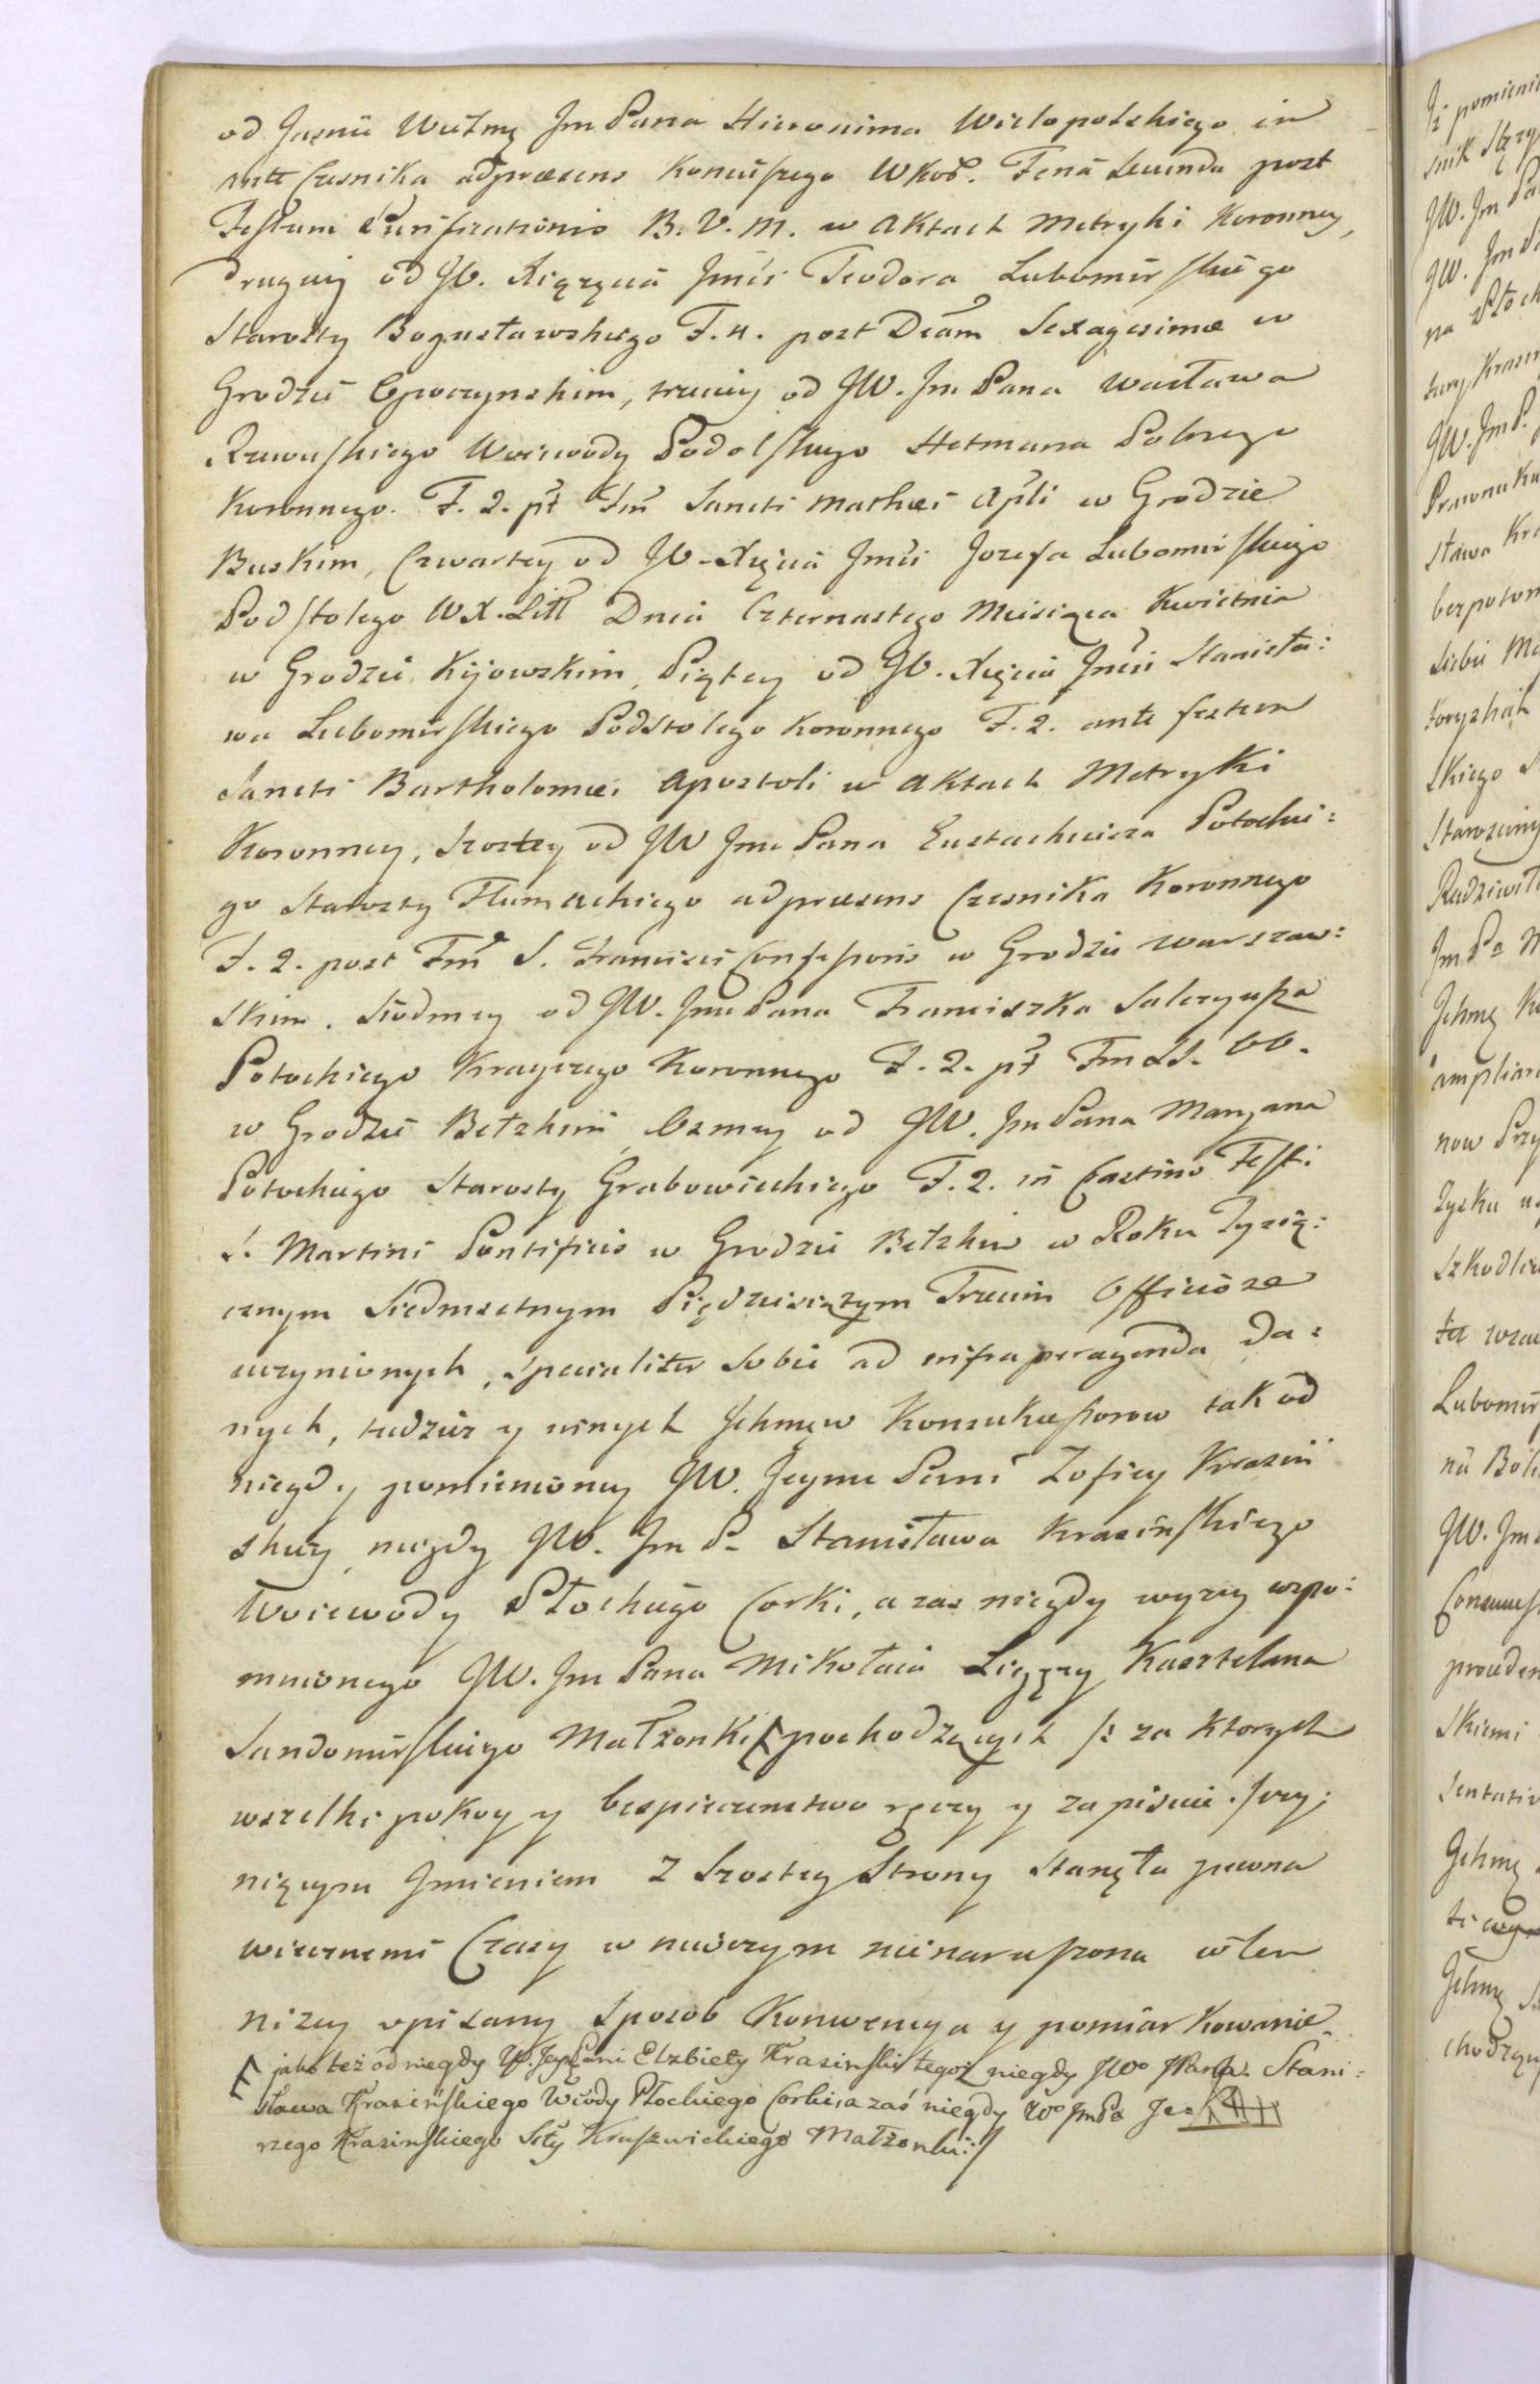 od Jaśnie Wielmę Jm Pana Hieronima Wielopolskiego in
ante Czesnika adpraesens Koniuszego WKor. Feria Secunda post
Festum Purificationis B. V. M. w Aktach Metryki Koronney,
drugiey od JW. Xiążęcia Jmci Teodora Lubomirskiego
Starosty Bogusławskiego F. 4. post Dcam Sexagesimae w
Grodzie Opoczynskim, trzeciey od JW. Jm Pana Wacława
Rzewuskiego Woiewody Podolskiego Hetmana Polnego
Koronnego. F. 2. pt Fm Sancti Mathei Apli w Grodzie
Buskim, Czwartey od JO. Xięcia Jmci Jozefa Lubomirskiego
Podstolego W.X. Litt Dnia Czternastego Miesiąca Kwietnia
w Grodzie Kijowskim, Piątey od JO. Xięcia Jmci Stanisła:
wa Lubomirskiego Podstolego Koronnego F. 2. ante festum
Sancti Bartholomei Apostoli w Aktach Metryki
Koronney, Szostey od JW Jmc Pana Eustachiusza Potockie:
go Starosty Tlumackiego adpraesens Czesnika Koronnego
F. 2. post Fm S. Francisci Confessoris w Grodzie Warszaw:
skim. Siodmey od JW. Jmc Pana Franciszka Salezyusza
Potockiego Krayczego Koronnego F. 2. pt Fm SS. OO.
w Grodzie Bełzkim, Osmey od JW. Jm Pana Maryana
Potockiego Starosty Grabowieckiego F. 2. in Crastino Festi
S. Martini Pontificis w Grodzie Bełzkim w Roku Tysią:
cznym Siedmsetnym Pięćdziesiątym Trzecim Officiose
uczynionych, specialiter sobie ad infra peragenda da:
nych, tudzież y innych Jchmęw Konsukcessorow tak od
niegdy pomienioney JW. Jeymc Pani Zofiey Krasiń
skiey, niegdy JW. Jm P. Stanisława Krasińskiego
Woiewody Płockiego Corki, a zas niegdy wyzey wspo:
mnionego JW. Jm Pana Mikołaia Ligęzy Kasztelana
Sandomirskiego Małżonki [ pochodzących /: za ktorych
wszelki pokoy y bespieczenstwo ręczy y zapisuie :/ czy:
niącym Jmieniem z Szostey Strony Stanęła pewna
wiecznemi Czasy w niwczym nienaruszona w ten
nizey opisany Sposob Konwencya y pomiarkowanie
[ jako też od niegdy W. Jey Pani Elzbiety Krasinskiey tegoż niegdy JWo JPana Stani:
sława Krasińskiego Wdy Płockiego Corki, a zaś niegdy Wo Jm Pa Je:
rzego Krasinskiego Stty Kruszwickiego Małżonki :/